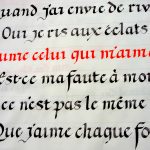 uand j'ai envie de riv
Oui je ris aux éclats
ume celui qui m'aime
Est-ce ma faute à moi
ce n'est pas le même
Que j'aime chaque fo